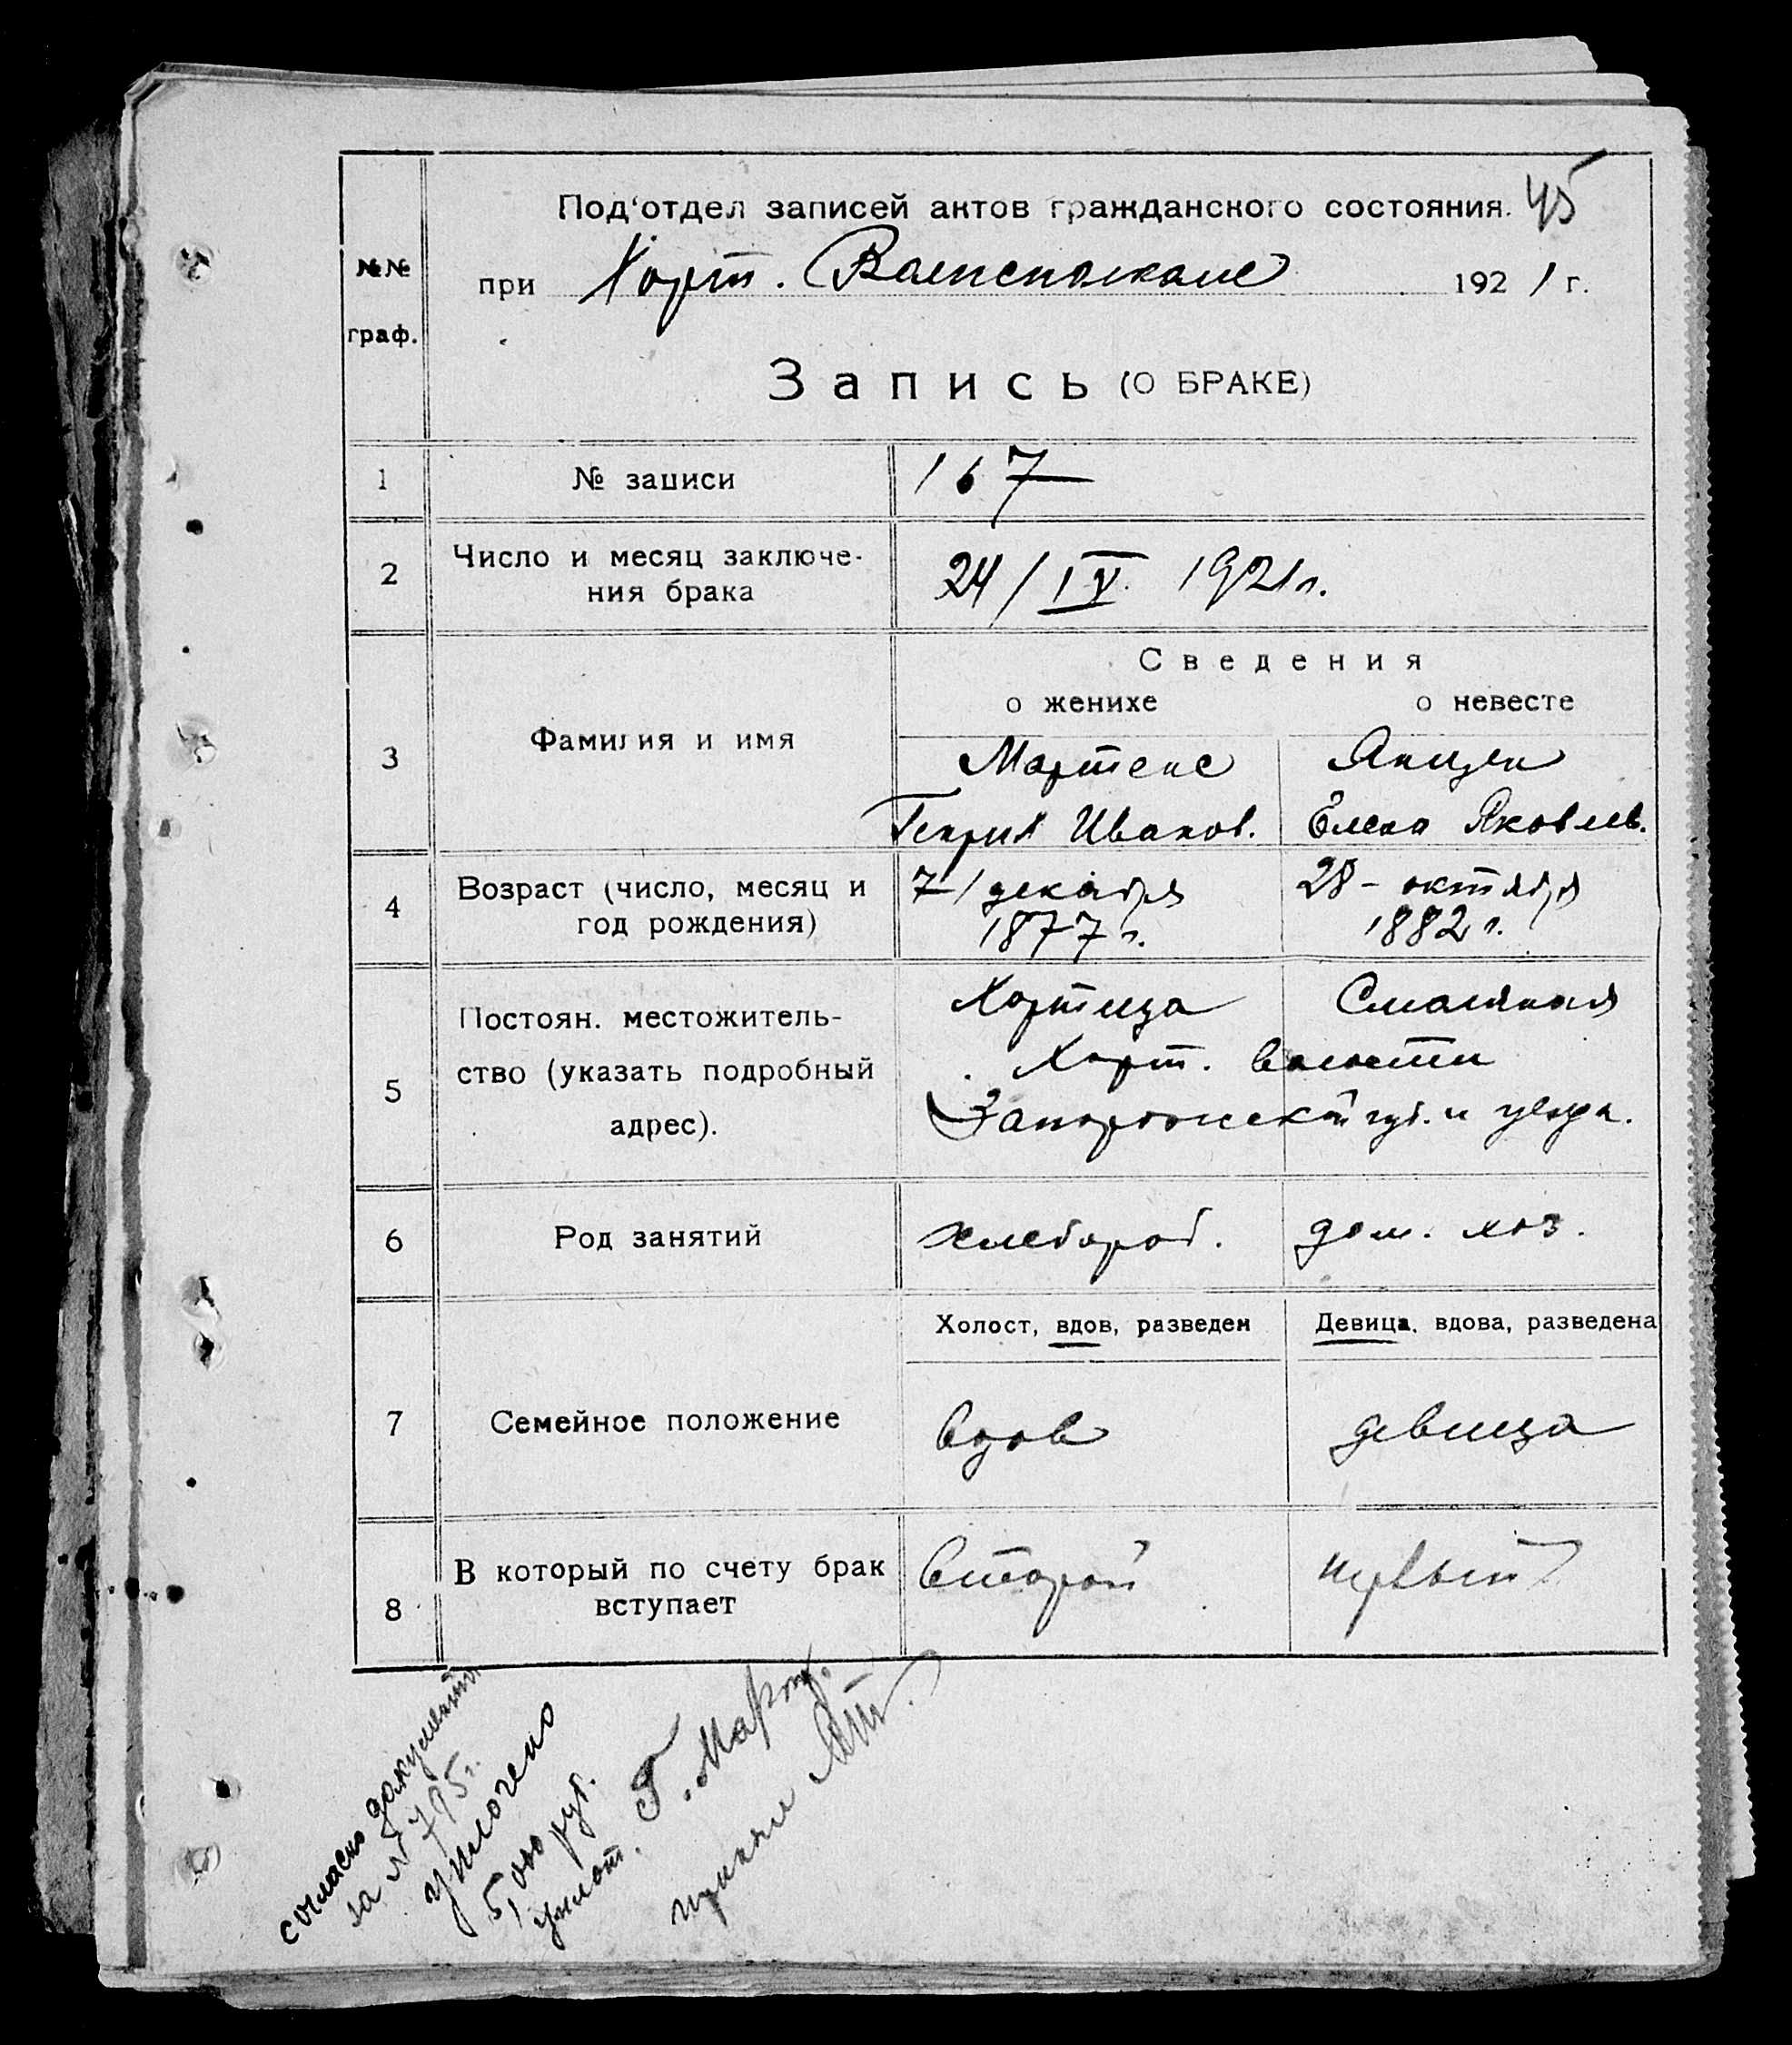 Под'отдел записей актов гражданского состояния. 45
№№
граф.
при Хорт. Волисполкоме 1921 г.
Запись (О БРАКЕ)
1 № записи 167
2 Число и месяц заключе-
ния брака 24/IV. 1921 г.
Сведения
о женихе о невесте
3 Фамилия и имя
Мартенс Янцен
Генрих Иванов. Елена Яковлев.
4 Возраст (число, месяц и
год рождения)
7/декабря 28 - октября
1877 г. 1882 г.
5 Постоян. местожитель-
ство (указать подробный
адрес).
Хортица Смоляная
Хорт. волости
Запорожской губ. и уезда.
6 Род занятий хлебороб. дом. хоз.
Холост, вдов, разведен Девица, вдова, разведена
7 Семейное положение вдов девица
8 В который по счету брак
вступает
второй первый
согласно документа
за № 795 г.
уплочено
5000 руб.
уплат. Г. Март.
принял